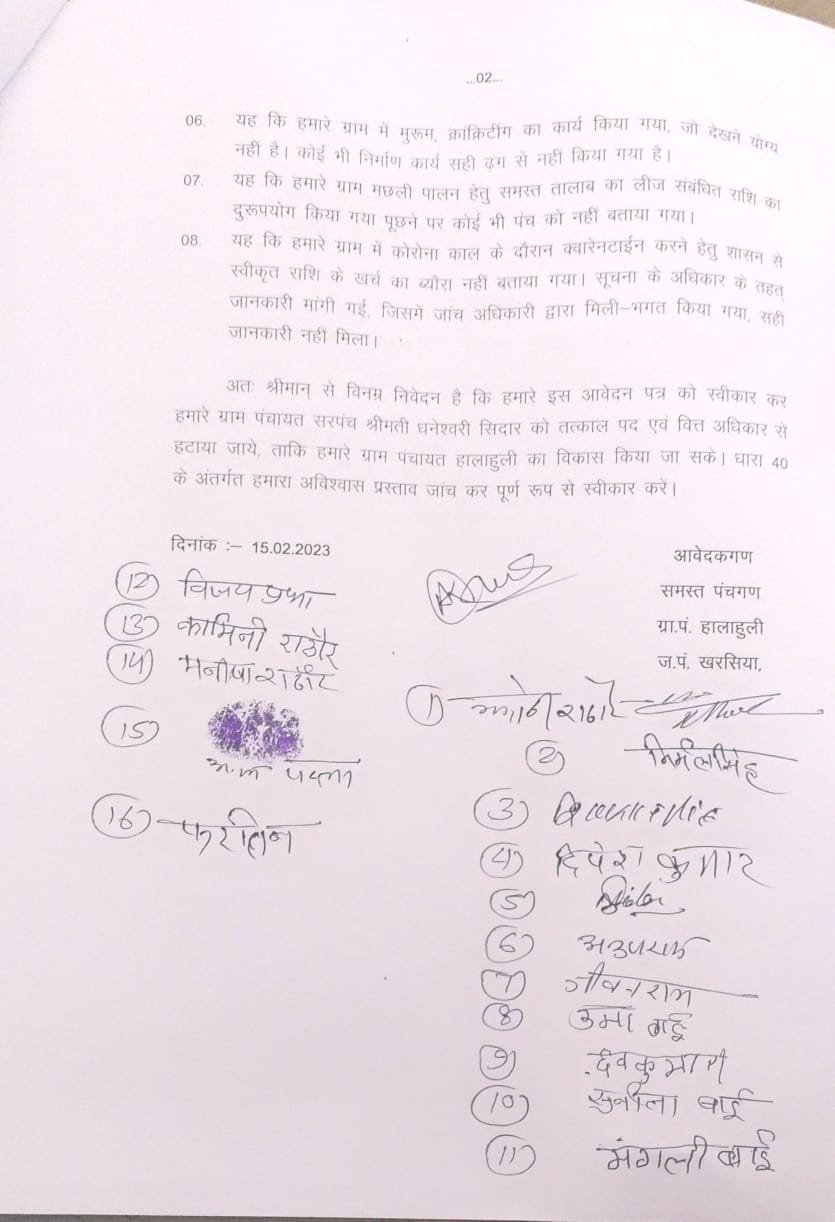 ...02...
06. यह कि हमारे ग्राम में मुरूम, क्रांक्रिटींग का कार्य किया गया, जो देखने योग्य
नहीं है। कोई भी निर्माण कार्य सही ढ़ंग से नहीं किया गया है।
07. यह कि हमारे ग्राम मछली पालन हेतु समस्त तालाब का लीज संबंधित राशि का
दुरूपयोग किया गया पूछने पर कोई भी पंच को नहीं बताया गया।
08. यह कि हमारे ग्राम में कोरोना काल के दौरान क्वारेनटाईन करने हेतु शासन से
स्वीकृत राशि के खर्च का ब्यौरा नहीं बताया गया। सूचना के अधिकार के तहत्
जानकारी मांगी गई, जिसमें जांच अधिकारी द्वारा मिली-भगत किया गया, सही
जानकारी नहीं मिला।
अतः श्रीमान् से विनम्र निवेदन है कि हमारे इस आवेदन पत्र को स्वीकार कर
हमारे ग्राम पंचायत सरपंच श्रीमती धनेश्वरी सिदार को तत्काल पद एवं वित्त अधिकार से
हटाया जाये, ताकि हमारे ग्राम पंचायत हालाहुली का विकास किया जा सके। धारा 40
के अंतर्गत हमारा अविश्वास प्रस्ताव जांच कर पूर्ण रूप से स्वीकार करें।
दिनांक :– 15.02.2023
आवेदकगण
समस्त पंचगण
ग्रा.पं. हालाहुली
ज.पं. खरसिया,
12) विजय
13) कामिनी राठौर
14) मनीषा राठौर
15)
16)
1)
2) निर्मलसिंह
3)
4) दिपेश कुमार
5)
6)
7) जीवनराम
8) उमा बाई
9) देवकुमारी
10) सुनीता बाई
11) मंगली बाई